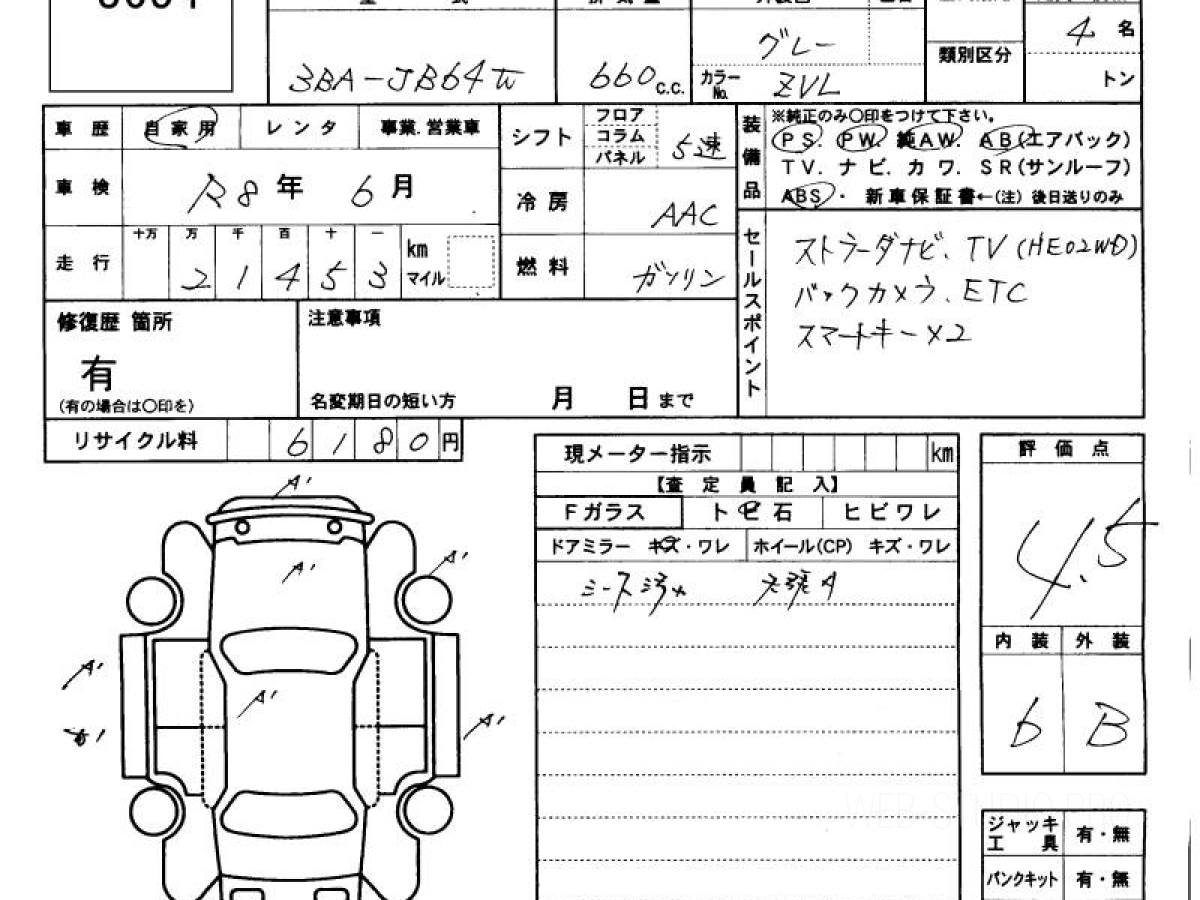 4 名
グレー
類別区分
3BA-JB64W
660 c.c.
カラーNo. ZVL
トン
車歴 自家用 レンタ 事業.営業車
シフト フロア コラム パネル 5速
装備品
※純正のみ〇印をつけて下さい。
PS. PW. 純AW. AB(エアバック)
TV. ナビ. カワ. SR(サンルーフ)
ABS・ 新車保証書←(注) 後日送りのみ
車検 R8年 6月
冷房 AAC
走行 十万 万 千 百 十 一
2 1 4 5 3 km マイル
燃料 ガソリン
セールスポイント
ストラーダナビ、TV(HE02WD)
バックカメラ、ETC
スマートキー×2
修復歴 箇所
有
(有の場合は〇印を)
注意事項
名変期日の短い方 月 日まで
リサイクル料 6 1 8 0 円
現メーター指示 km
【査定員記入】
Fガラス トビ石 ヒビワレ
ドアミラー キズ・ワレ ホイール(CP) キズ・ワレ
シート汚れ
評価点
4.5
内装 外装
b B
A'
A'
A'
A'
A'
A'
ジャッキ工具 有・無
パンクキット 有・無